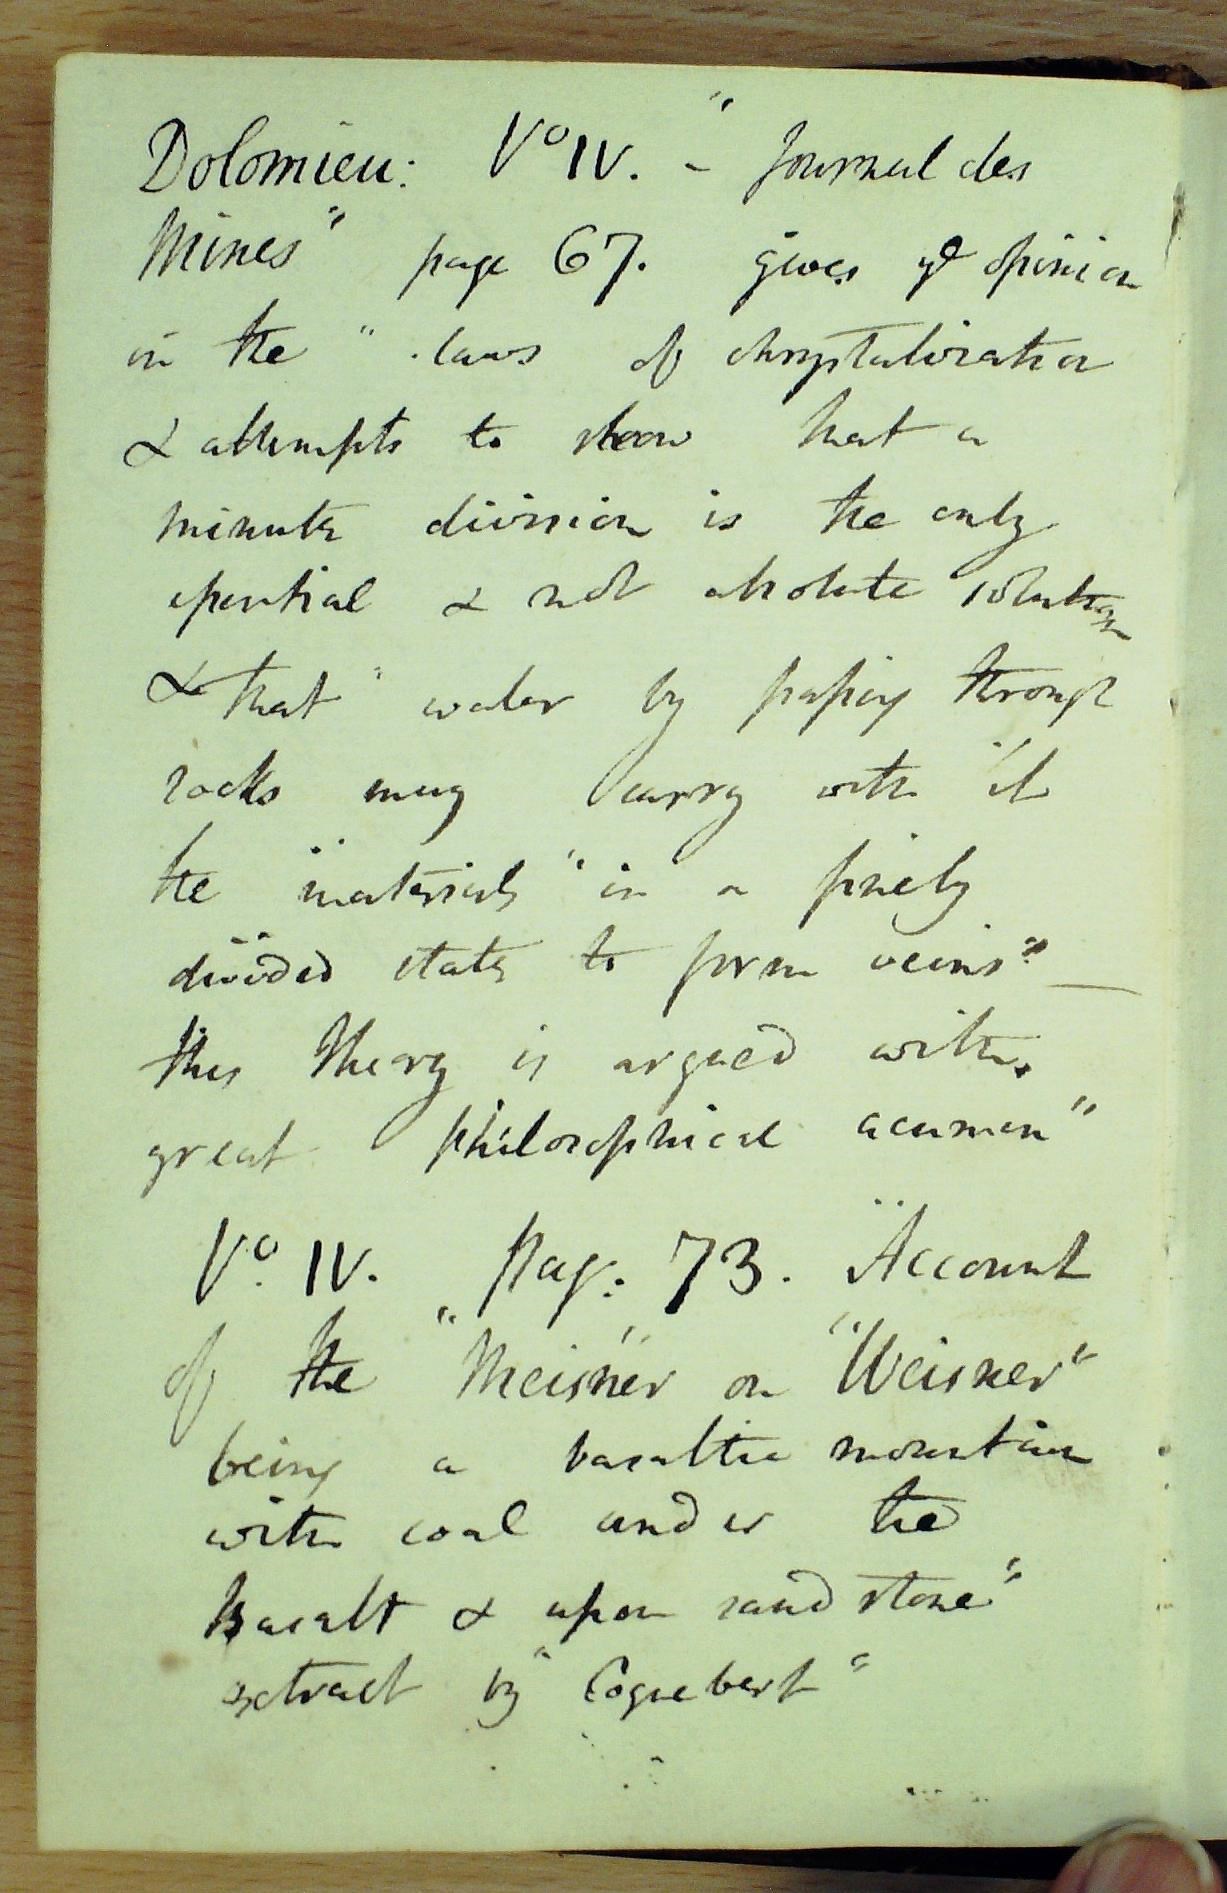 Dolomieu: Vo IV. - "Journal des
Mines" page 67. gives ye opinion
in the "laws of chrystalization
& attempts to show that a
minute division is the only
essential & not absolute solution
& that "water by passing through
rocks may carry with it
the "materials" in a finely
divided state to form veins" —
this theory is argued with
great philosophical acumen"
Vo. IV. Pag: 73. "Account
of the "Meisner on "Weisner"
being a basaltic mountain
with coal under the
basalt & upon sand stone"
extract by "Coquebert"